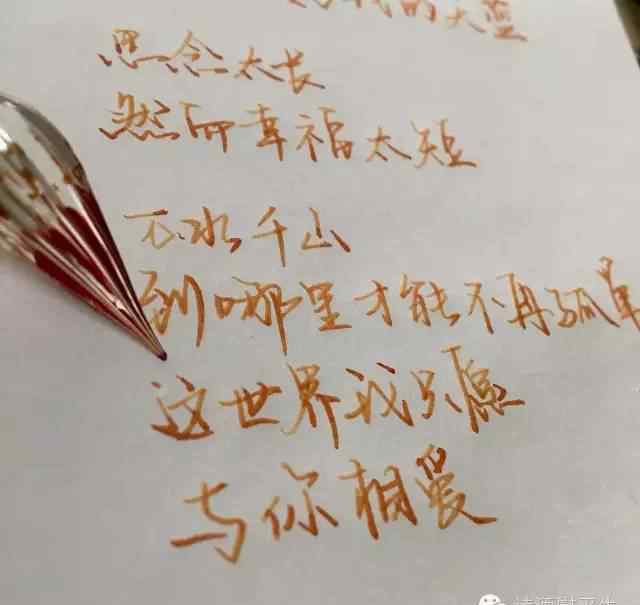 我的大蓝
思念太长
然而幸福太短
万水千山
到哪里才能不再孤单
这世界我只愿
与你相爱